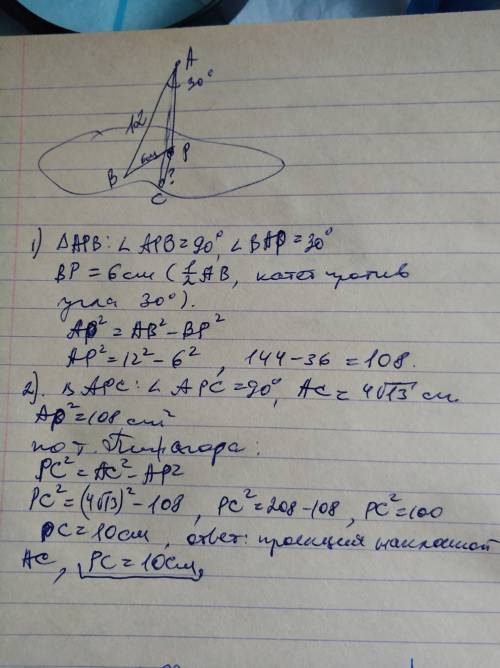 A
30°
12
6см
P
B
?
C
1) ΔAPB: ∠APB=90°, ∠BAP=30°
BP = 6см (1/2 AB, катет против
угла 30°).
AP² = AB² - BP²
AP² = 12² - 6², 144 - 36 = 108.
2). ΔAPC: ∠APC=90°, AC = 4√13 см.
AP²=108 см²
по т. Пифагора:
PC² = AC² - AP²
PC² = (4√13)² - 108, PC² = 208 - 108, PC² = 100
PC = 10см, ответ: проекция наклонной
AC, PC = 10см.